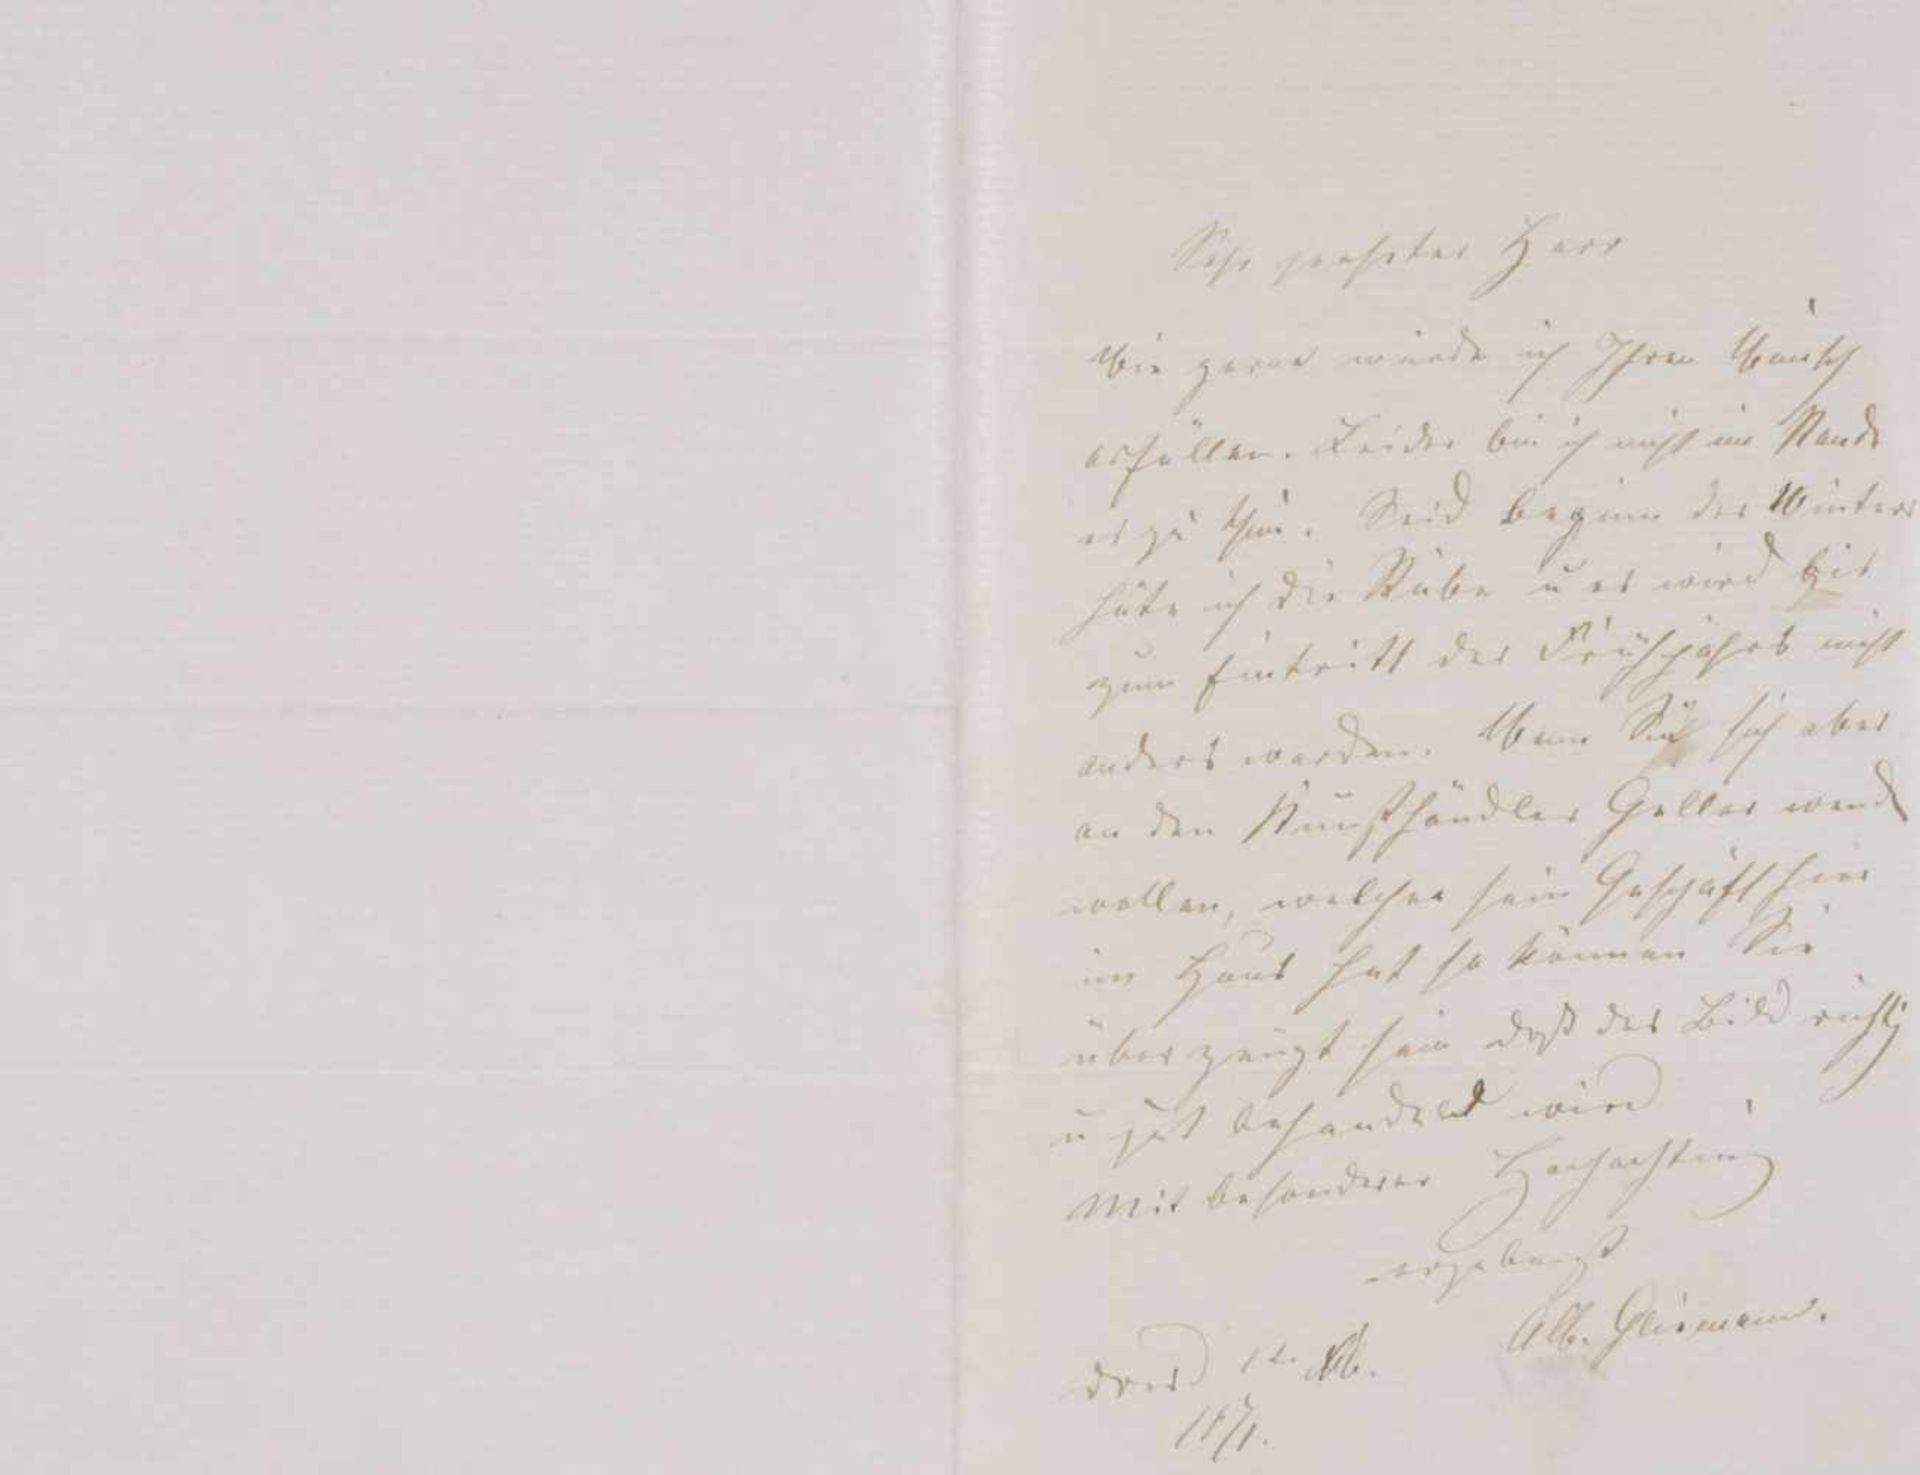 Sehr geehrter Herr
Wie gerne würde ich Ihren Wunsch
erfüllen. Leider bin ich nicht im Stande
es zu thun. Seid beginn des Winters
hüte ich die Stube u es wird bis
zum Eintritt des Frühjahrs nicht
anders werden. Wenn Sie sich aber
an den Kunsthändler Geller wend
wollen, welcher sein Geschäft hier
im Haus hat so können Sie
überzeugt sein daß das Bild richtig
u gut behandeld wird
Mit besonderer Hochachtung
ergebenst
Alb. Gliemann.
Dresd 12
1871.